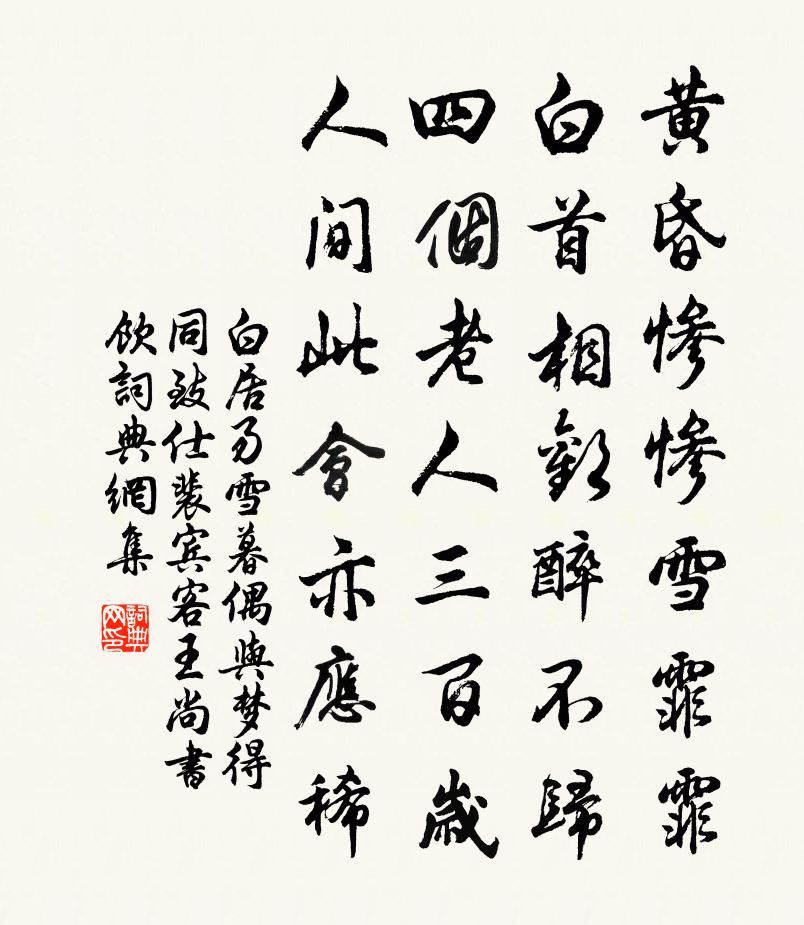 黃昏慘慘雪霏霏
白首相歡醉不歸
四個老人三百歲
人間此會亦應稀
白居易雪暮偶與梦得
同致仕裴宾客王尚書
飲詞典網集
詞典网印